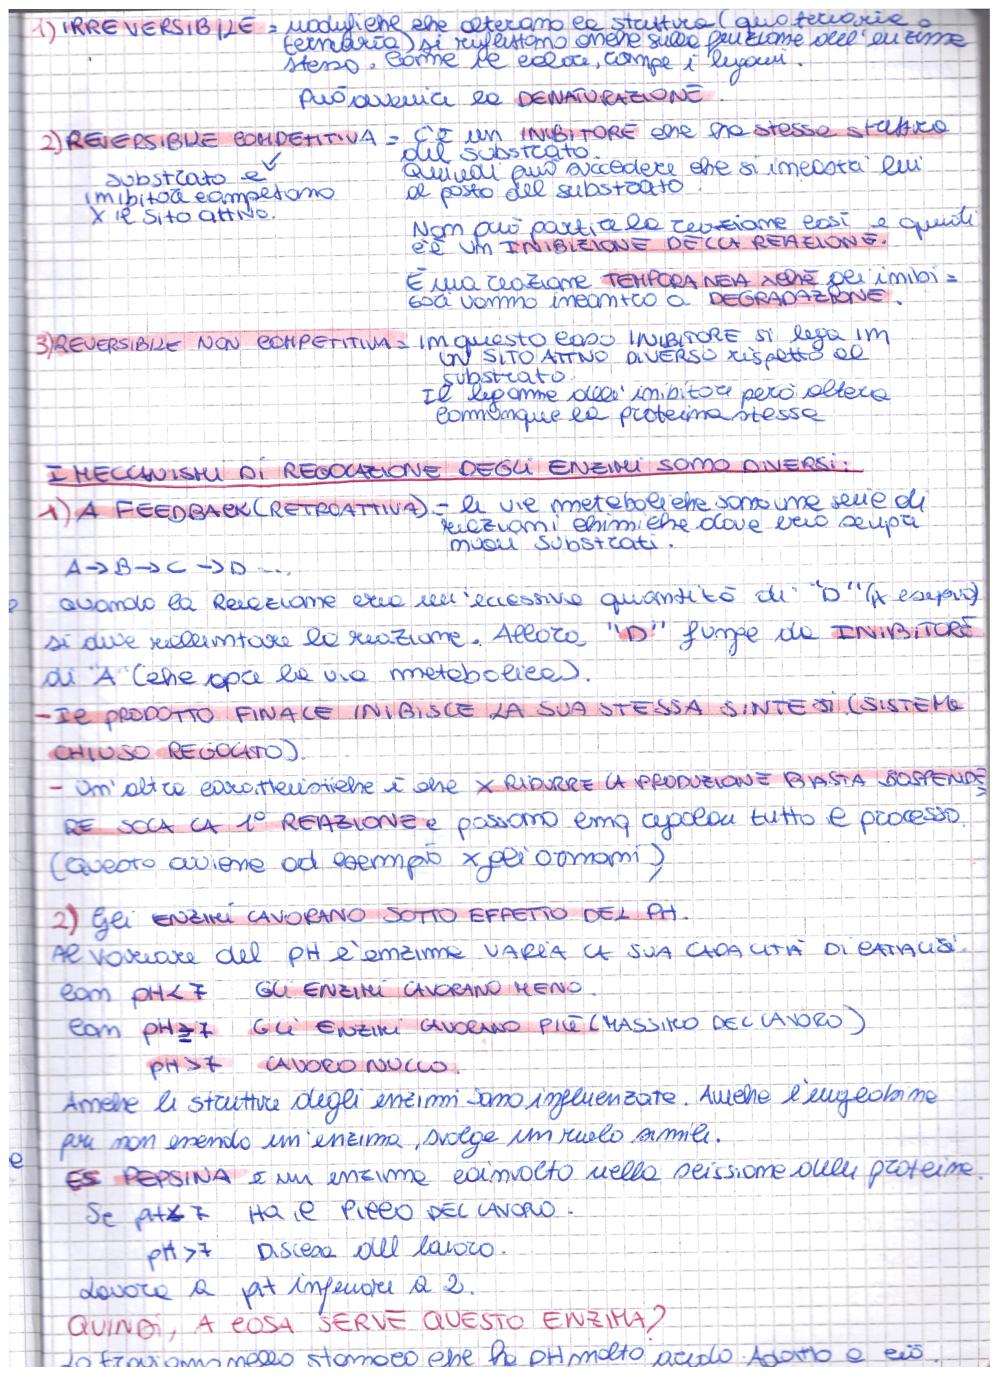 1) IRREVERSIBILE = modifiche che alterano la struttura (quaternaria o
ternaria) si riflettono anche sulla funzione dell'enzima
stesso. Come il calore, rompe i legami.
Può avvenire la DENATURAZIONE.
2) REVERSIBILE COMPETITIVA = C'È un INIBITORE che ha stessa struttura
del substrato.
substrato e
Quindi può succedere che si incastri lui
inibitore competono
al posto del substrato.
x il sito attivo.
Non può partire la reazione così e quindi
c'è un INIBIZIONE DELLA REAZIONE.
È una reazione TEMPORANEA xché gli inibi =
tori vanno incontro a DEGRADAZIONE.
3) REVERSIBILE NON COMPETITIVA = in questo caso INIBITORE si lega in
UN SITO ATTIVO DIVERSO rispetto al
substrato.
Il legame dell'inibitore però altera
comunque la proteina stessa
I MECCANISMI DI REGOLAZIONE DEGLI ENZIMI SONO DIVERSI:
1) A FEEDBACK (RETROATTIVA) = le vie metaboliche sono una serie di
reazioni chimiche dove creo sempre
nuovi substrati.
A → B → C → D ...
quando la Reazione crea un'eccessiva quantità di "D" (x esempio)
si deve rallentare la reazione. Allora "D" funge da INIBITORE
di "A" (che apre la via metabolica).
- Il PRODOTTO FINALE INIBISCE LA SUA STESSA SINTESI. (SISTEMA
CHIUSO REGOLATO).
- Un'altra caratteristiche è che x RIDURRE LA PRODUZIONE BASTA SOSPENDE
RE SOLA LA 1° REAZIONE e possono tutto il processo.
(Questo avviene ad esempio x gli ormoni)
2) Gli ENZIMI LAVORANO SOTTO EFFETTO DEL PH.
Al variare del pH l'enzima VARIA LA SUA CAPACITÀ DI CATALISI.
Con pH < 7 GLI ENZIMI LAVORANO MENO.
Con pH = 7 GLI ENZIMI LAVORANO PIÙ (MASSIMO DEL LAVORO)
pH > 7 LAVORO NULLO.
Anche le strutture degli enzimi sono influenzate. Anche l'emoglobina
pur non essendo un'enzima, svolge un ruolo simile.
ES PEPSINA è un enzima coinvolto nella scissione delle proteine.
Se pH < 7 HA il PICCO DEL LAVORO.
pH > 7 Discesa del lavoro.
Lavora a pH inferiore a 2.
QUINDI, A COSA SERVE QUESTO ENZIMA?
Lo troviamo nello stomaco che ha pH molto acido. Adatto a ciò.